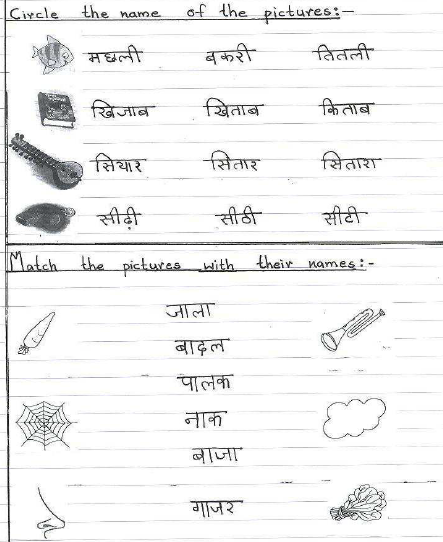 Circle the name of the pictures:-
मछली बकरी तितली
खिजाब खिताब किताब
सियार सितार सितारा
सीढ़ी सीठी सीटी
Match the pictures with their names:-
जाला
बादल
पालक
नाक
बाजा
गाजर